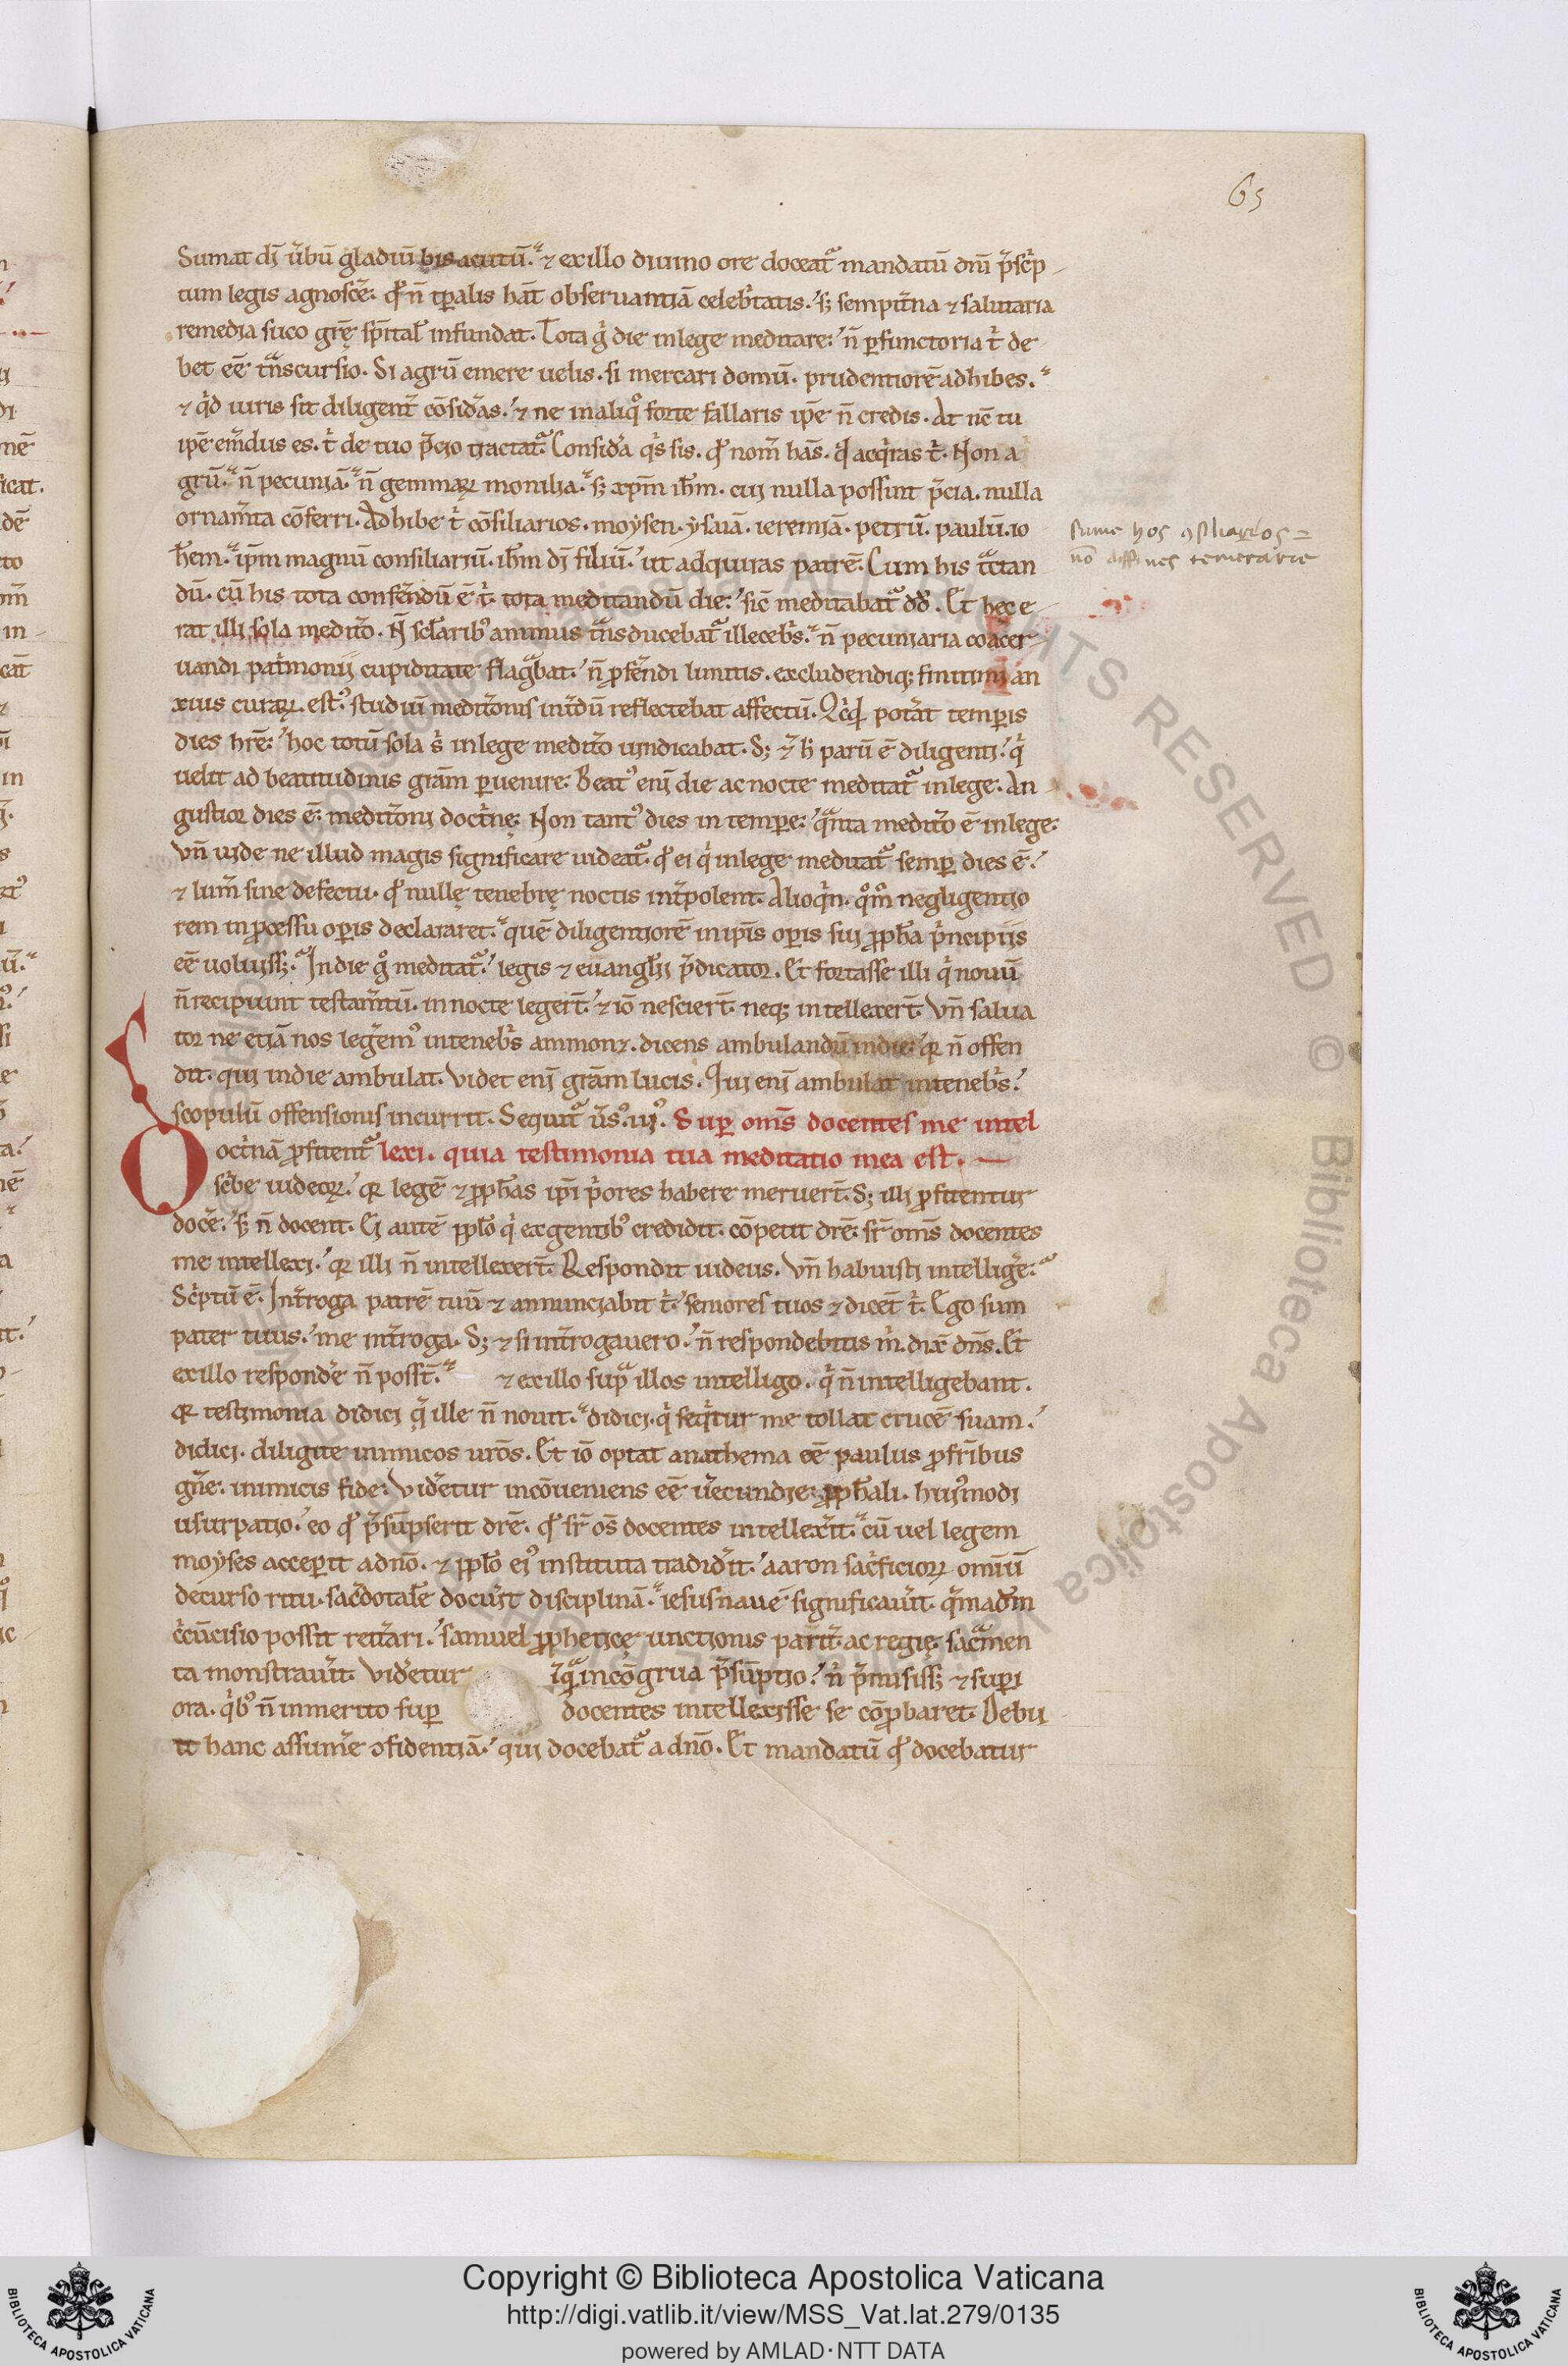 65
Sumat dī ũbū gladiū bis acutū. ⁊ ex illo diuino ore doceat᷑ mandatū dnī p̃sc̃p
tum legis agnosce᷑. qđ n̄ tꝑalis hāt obseruantiā celeb̃tatis. sꝫ sempit̃na ⁊ salutaria
remedia suco grę̄ sp̄ital̃ infundat. Tota g̊ die in lege meditare. n̄ ꝑfunctoria t̉ de
bet eē t̃nscursio. Si agrū emere uelis. si mercari domū. prudentiorē adhibes.
⁊ q̉d iuris sit diligent̃ cōsid̃as. ⁊ ne in aliq̊ forte fallaris ip̄e n̄ credis. At nc̄ tu
ip̄e em̃dus es. t̉ de tuo p̃cio tractat᷑. Consid̃a q̉s sis. qđ nom̃ hās. qđ acq̉ras t̉. Non a
grū. n̄ pecuniā. n̄ gemmaꝝ monilia. sꝫ xp̄m ih̄m. cui nulla possunt p̃cia. nulla
ornam̃ta cōferri. Adhibe t̉ cōsiliarios. moysen. ysaiā. ieremiā. petrū. paulū. io
h̄em. ip̄m magnū consiliariū. ih̄m dī filiū. ut adquiras patrē. Cum his t̃ctan
dū. cū his tota conferendū ē t̉. tota meditandū die. sic̄ meditabat᷑ dđ. Et hec e
rat illi sola medit̃o. N̄ sclaribꝰ animus t̃nsducebat᷑ illeceb̃s. n̄ pecuniaria coacer
uandi pat̉monii cupiditate flag̃bat. n̄ ꝓferendi limitis. excludendiqꝫ finitimi an
xius curaꝝ. estꝰ. studiū medit̃onis int̃dū reflectebat affectū. Qcq̉d pot̃at temꝑis
dies hr̄e. hoc totū sola s̉ in lege medit̃o uindicabat. Sꝫ ⁊ h̉ parū ē diligenti. q̉
uelit ad beatitudinis grām ꝑuenire. Beatꝰ enī die ac nocte meditat᷑ in lege. An
gustior dies ē. medit̃oni doct̉ne̜. Non tantꝰ dies in temꝑe. q̃nta medit̃o ē in lege.
Vn̄ uide ne illud magis significare uideat᷑. qđ ei q̉ in lege meditat᷑ semꝑ dies ē.
⁊ lum̃ sine defectu. qđ nulle̜ tenebre̜ noctis int̃polent. Alioq̉n. qm̊ negligentio
rem in ꝓcessu oꝑis declararet. quē diligentiorē in ip̄is oꝑis sui ꝓph̄a p̉ncipiis
eē uoluisꝫ. In die g̊ meditat᷑. legis ⁊ euangl̄ii p̃dicator. Et fortasse illi q̉ nouū
n̄ recipiunt testam̃tū. in nocte leger̄t. ⁊ iō nescier̄t. neqꝫ intellexer̄t. Vn̄ salua
tor ne etiā nos leg̃emꝰ in teneb̃s ammonꝫ. dicens ambulandū in die. qꝛ n̄ offen
dit. qui in die ambulat. Videt enī grām lucis. Qui enī ambulat in teneb̃s.
scopulū offensionis incurrit. Sequit᷑ ũsꝰ. iiiꝰ. Suꝑ om̄s docentes me intel
Doct̉nā ꝓfitent᷑ lexi. quia testimonia tua meditatio mea est.
sc̉be iudeoꝝ. qꝛ legē ⁊ ꝓph̄as ip̄i p̉ores habere meruer̄t. Sꝫ illi ꝓfitentur
doce᷑. sꝫ n̄ docent. Ei autē pplō q̉ ex gentibꝰ credidit. cōpetit dr̄e. sr̄ om̄s docentes
me intellexi. qꝛ illi n̄ intellexer̄t. Respondit iudeus. Vn̄ habuisti intellige᷑.
Sc̉ptū ē. Int̃roga patrē tuū ⁊ annunciabit t̉. seniores tuos ⁊ dicēt t̉. Ego sum
pater tuus. me int̃roga. Sꝫ ⁊ si int̃rogauero. n̄ respondebitis m̉. dix̄ dn̄s. Et
ex illo responde᷑ n̄ possт̄. ⁊ ex illo sup̃ illos intelligo. q̉ n̄ intelligebant.
qꝛ testimonia didici q̃ ille n̄ nouit. didici. q̉ seq̉tur me tollat crucē suam.
didici. diligite inimicos uros̄. Et iō optat anathema eē paulus ꝓ fr̄ibus
gñe. inimicis fide. Vid̃etur incōueniens eē ũecundie̜ ꝓph̄ali. huiꝰmodi
usurpatio. eo qđ p̃sūpserit dr̄e. qđ sr̄ os̄ docentes intellex̃it. cū uel legem
moyses acceꝑit a dn̄o. ⁊ pplō eiꝰ instituta tradid̃it. aaron sac̉ficioꝝ omniū
decurso ritu. sac̃dotalē docũit disciplinā. iesus naue significaũit. q̃madm̄
c̉cūcisio possit rett̃ari. samuel ꝓphetice̜ unctionis parit̃ ac regie̜. sac̃men
ta monstraũit. Vid̃etur itaq̃ incōgrua p̃sūptio. n̉ p̃misisꝫ ⁊ suꝑi
ora. q̉bꝰ n̄ inmerito suꝑ docentes intellexisse se cōꝓbaret. Debu
it hanc assume᷑ ꝯfidentiā. qui docebat᷑ a dn̄o. Et mandatū qđ docebatur
sume hos ꝯsiliarios =
nō diffines temerarie
ALL RIGHTS RESERVED © Biblioteca Apostolica Vaticana
Copyright © Biblioteca Apostolica Vaticana
http://digi.vatlib.it/view/MSS_Vat.lat.279/0135
powered by AMLAD·NTT DATA
BIBLIOTECA APOSTOLICA VATICANA
BIBLIOTECA APOSTOLICA VATICANA